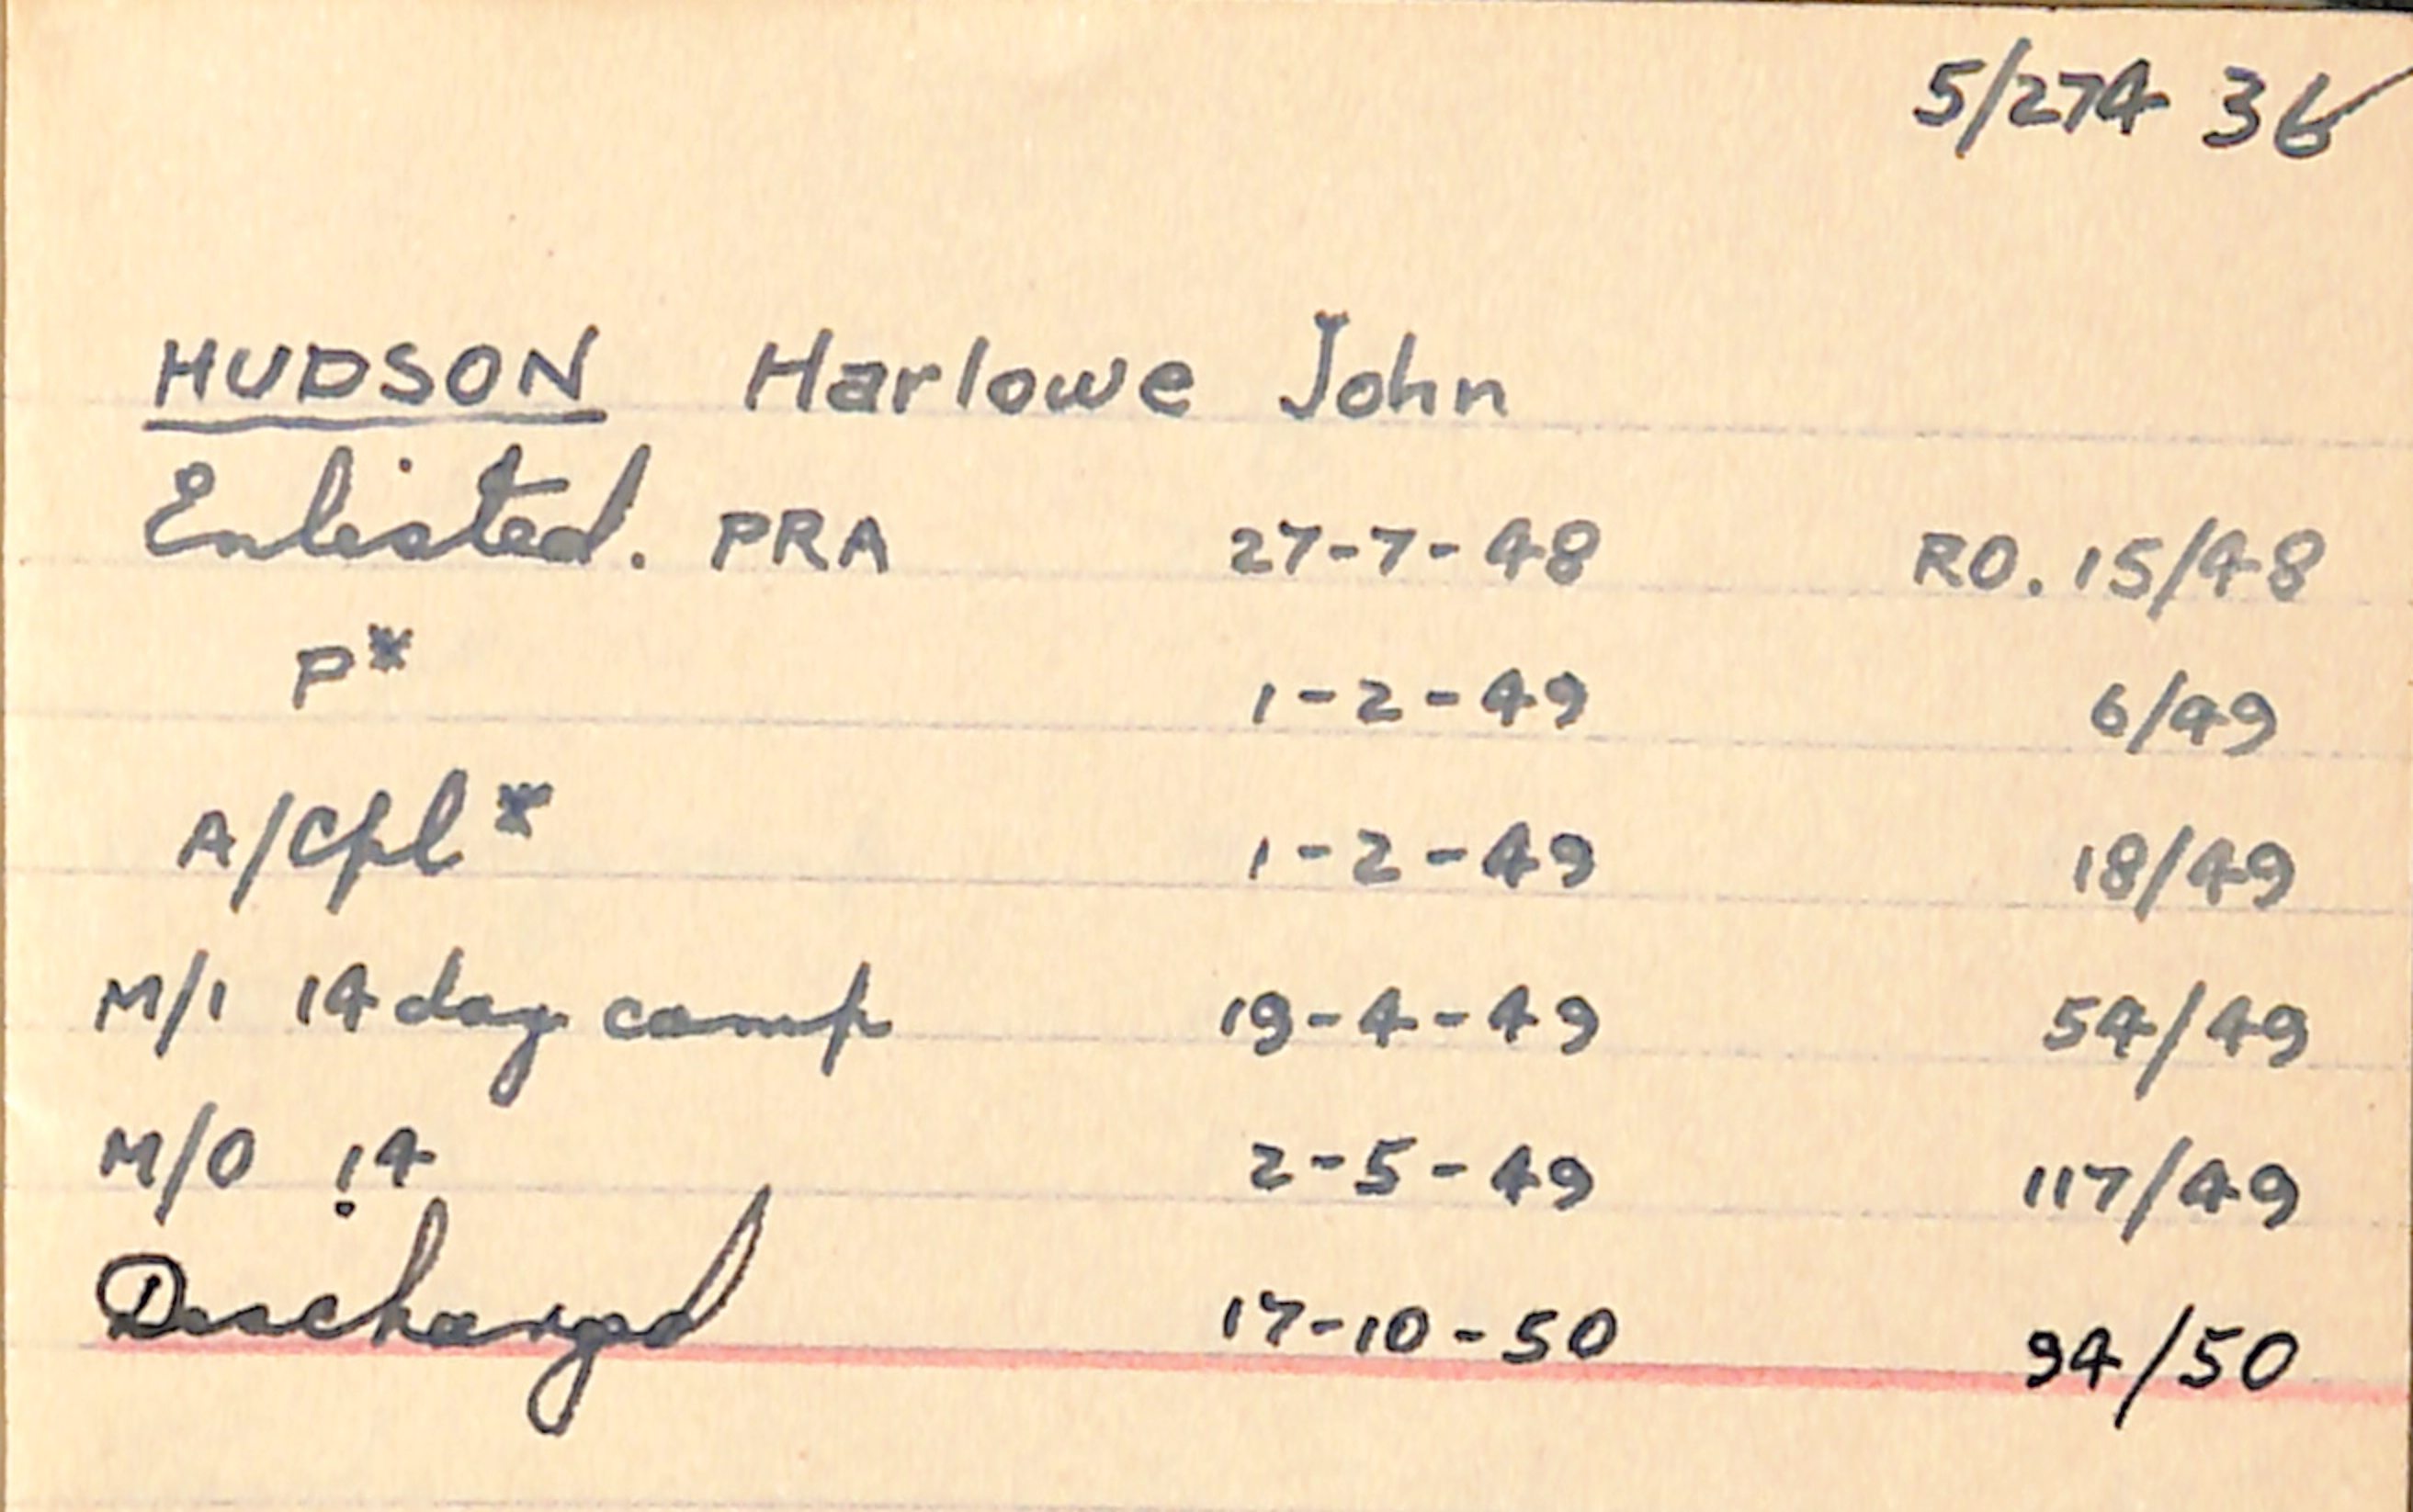 5/274 36
HUDSON Harlowe John
Enlisted. PRA 27-7-48 RO. 15/48
P* 1-2-49 6/49
A/Cpl* 1-2-49 18/49
M/1 14 day camp 19-4-49 54/49
M/O 14 2-5-49 117/49
Discharged 17-10-50 94/50